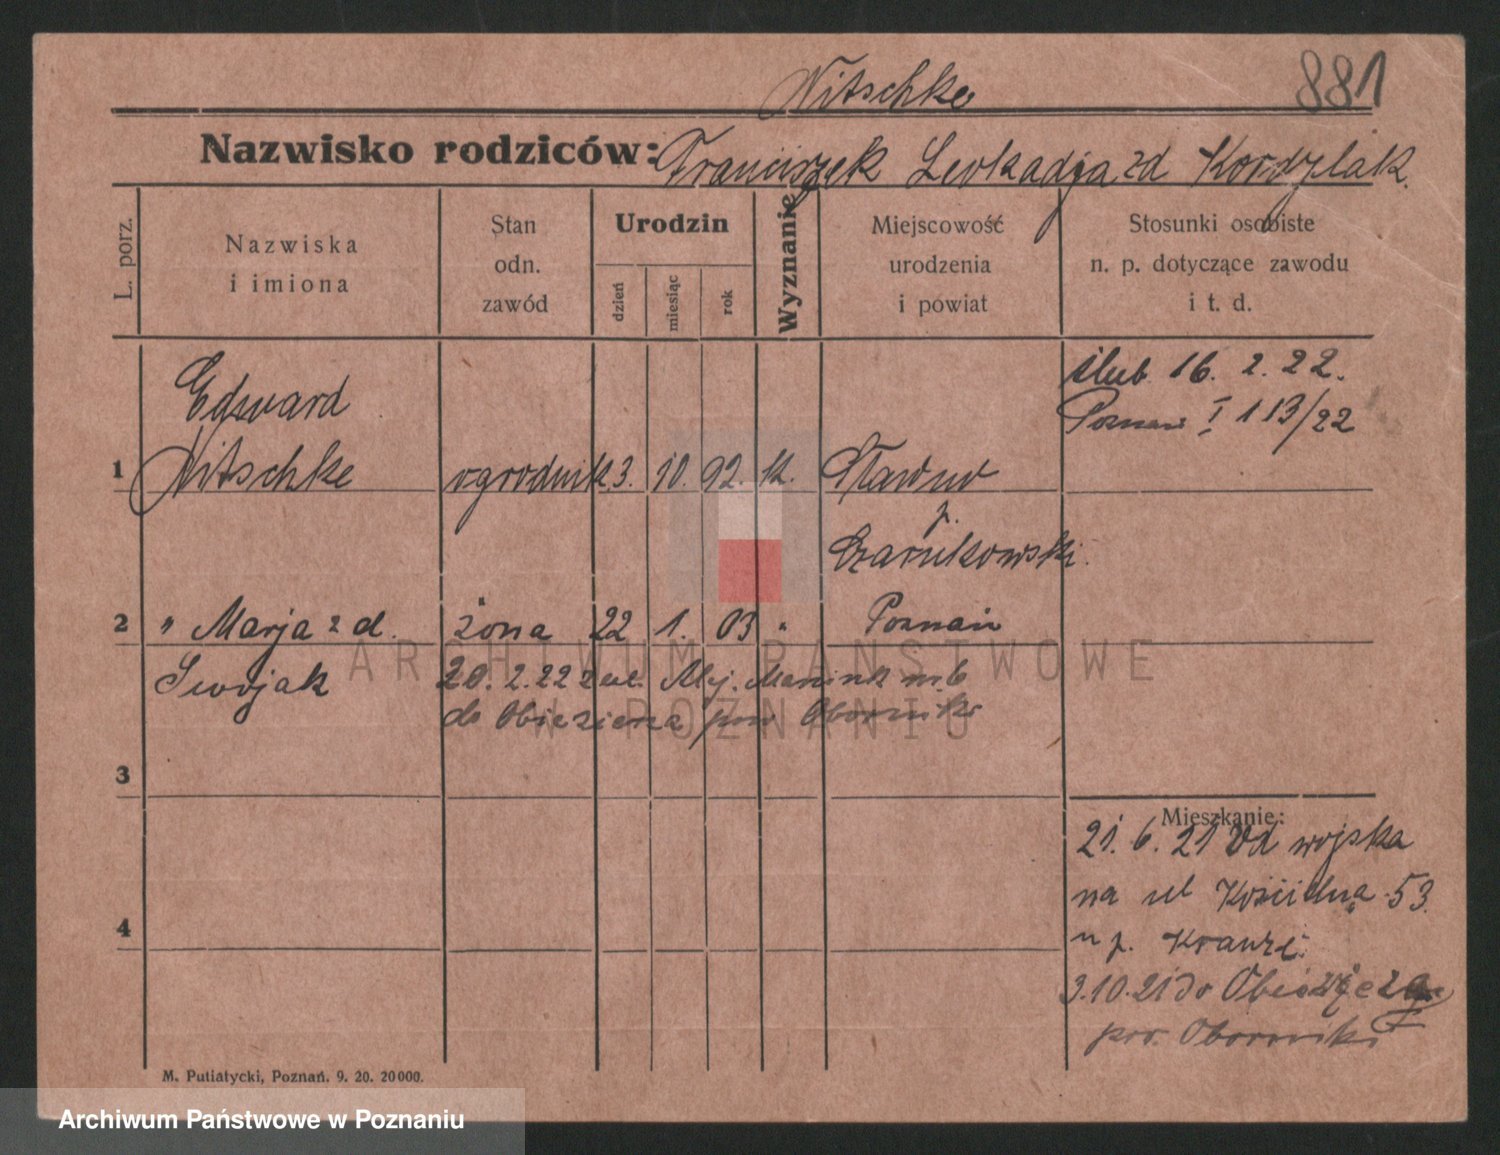 Nitschke
881
Nazwisko rodziców: Franciszek Leokadja zd Kordylak.
L. porz.
Nazwiska
i imiona
Stan
odn.
zawód
Urodzin
dzień
miesiąc
rok
Wyznanie
Miejscowość
urodzenia
i powiat
Stosunki osobiste
n. p. dotyczące zawodu
i t. d.
ślub 16. 2. 22.
Poznań I 113/22
Edward
1 Nitschke ogrodnik 3. 10. 92. k.
p.
Czarnkowski.
2 " Marja z d. żona 22 1. 03 " Poznań
20. 2. 22 nr. 6
do Obiezierza pow Oborniki
3
Mieszkanie:
21. 6. 21 Od wojska
na ul Kościelną 53.
u p. Krauze.
4
3.10.21 do
pow. Oborniki
M. Putiatycki, Poznań. 9. 20. 20000.
ARCHIWUM PAŃSTWOWE
W POZNANIU
Archiwum Państwowe w Poznaniu